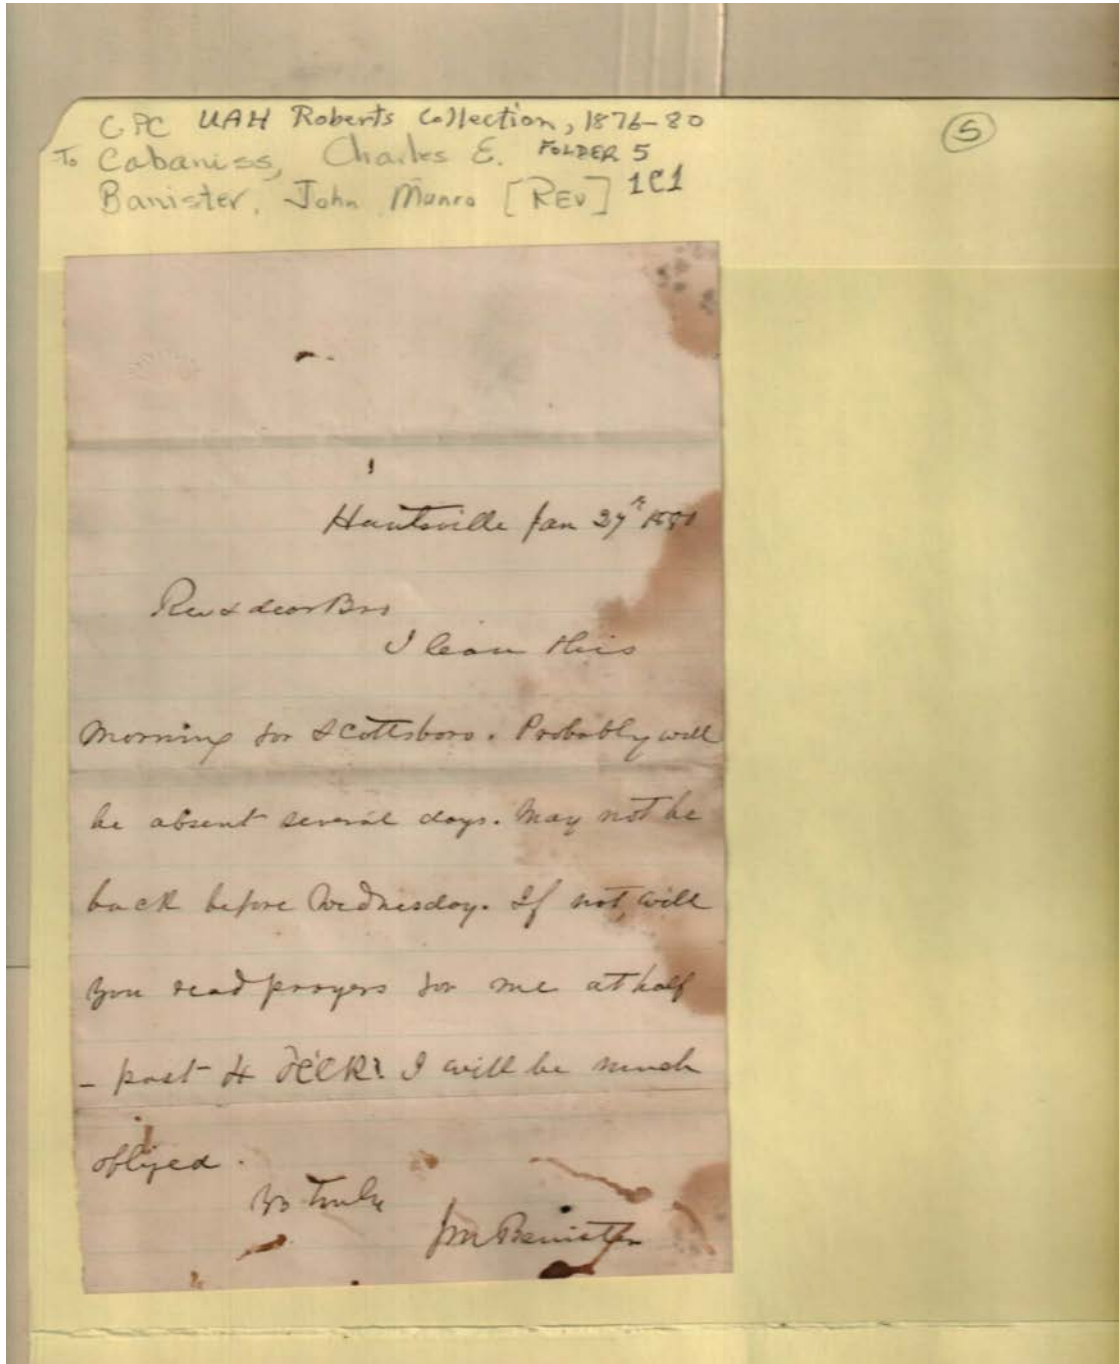 CPC UAH Roberts Collection, 1876-80
To Cabaniss, Charles E. FOLDER 5
Banister, John Munro [REV] 1C1
5
Huntsville Jan 27th
Rev & dear Bro
I leave this
morning for Scottsboro. Probably will
be absent several days. May not be
back before Wednesday. If not, will
you read prayers for me at half
- past 4 O'CLK? I will be much
obliged.
Yrs Truly
JM Banister